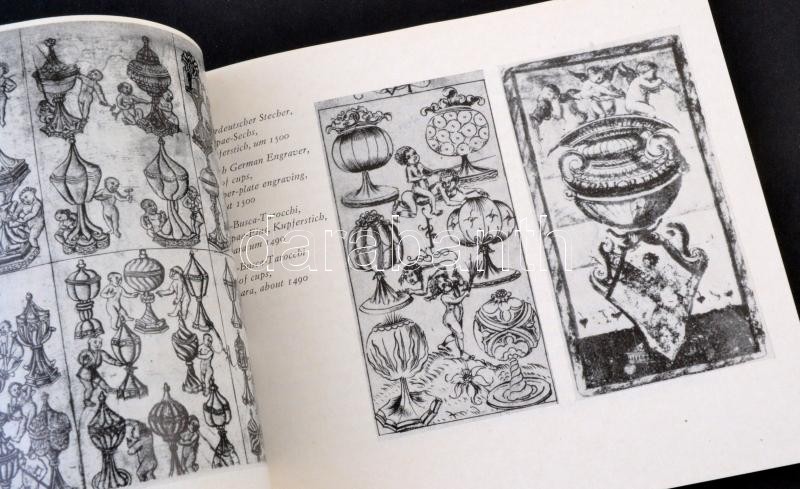 rdeutscher Stecher,
pae-Sechs,
ferstich, um 1500
h German Engraver,
of cups,
per-plate engraving,
t 1500
-Busca-Tarocchi,
Kupferstich,
um 1490
-Busca-Tarocchi
of cups,
ara, about 1490
darabanth